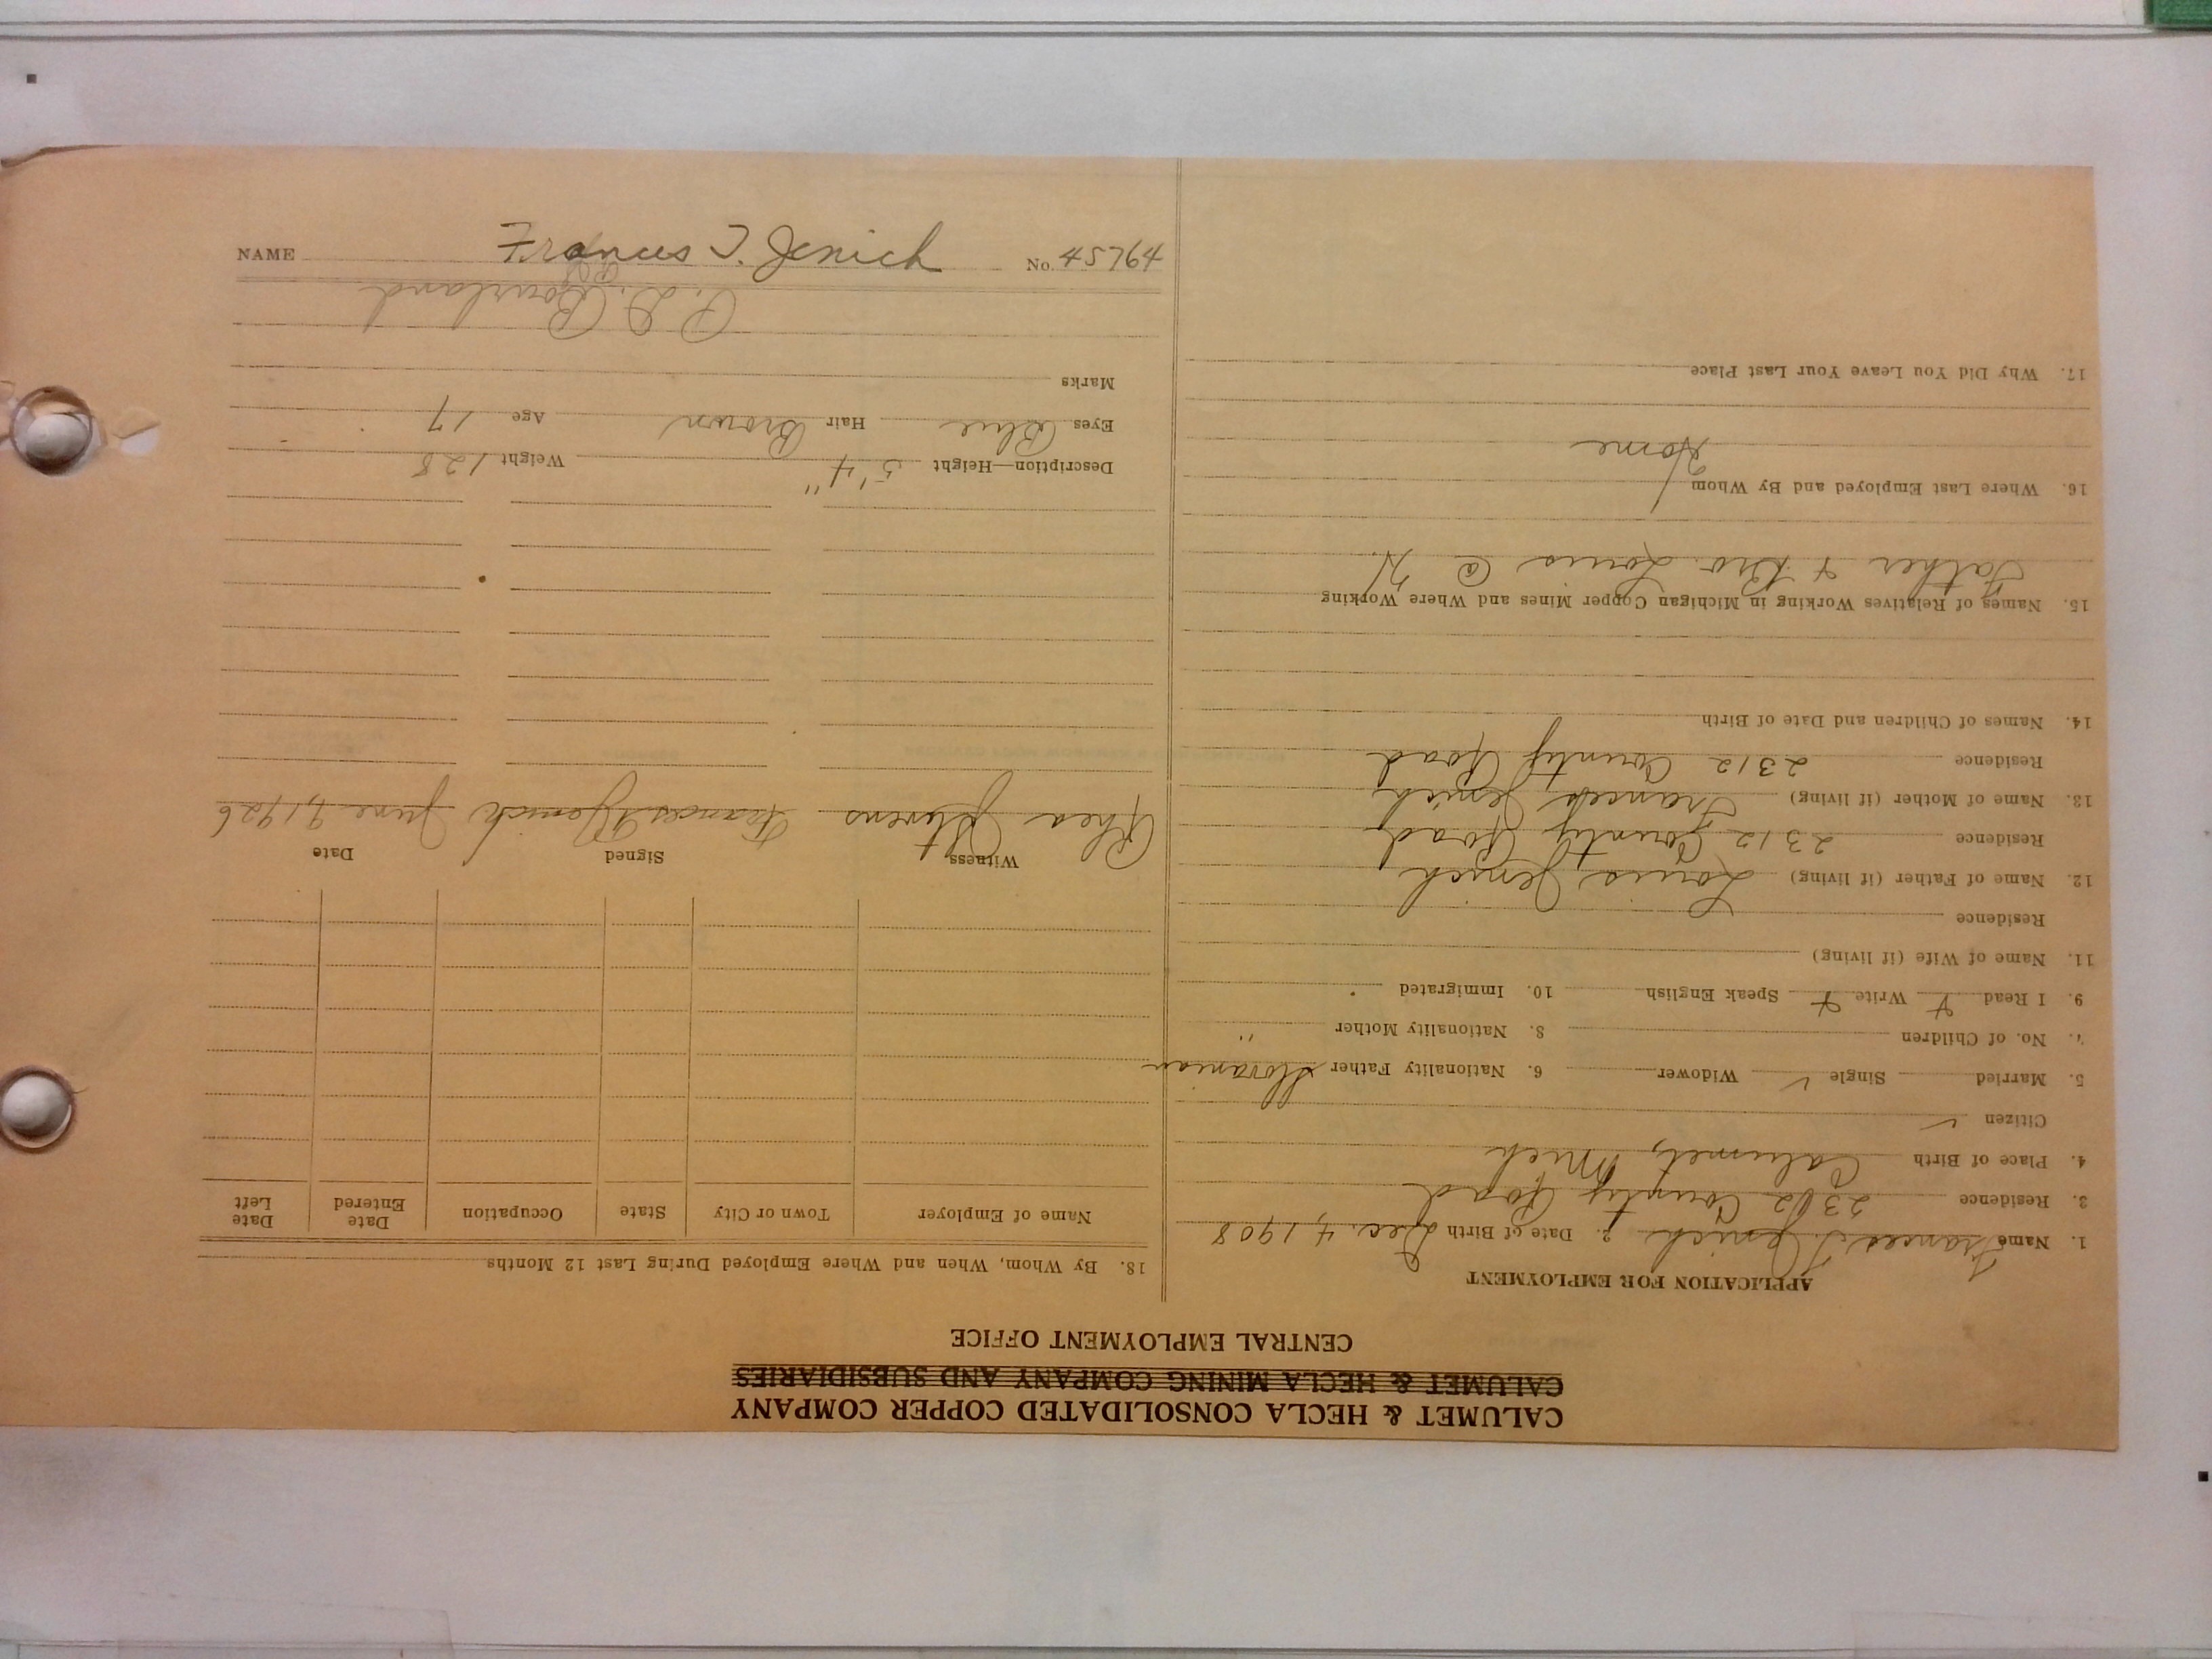 CALUMET & HECLA CONSOLIDATED COPPER COMPANY
CALUMET & HECLA MINING COMPANY AND SUBSIDIARIES
CENTRAL EMPLOYMENT OFFICE
APPLICATION FOR EMPLOYMENT
1. Name Frances T. Jenich 2. Date of Birth Dec. 4, 1908
3. Residence 2312 County Road
4. Place of Birth Calumet, Mich
Citizen ✓
5. Married Single ✓ Widower 6. Nationality Father Slovanian
7. No. of Children 8. Nationality Mother "
9. I Read Write Speak English 10. Immigrated
11. Name of Wife (if living)
Residence
12. Name of Father (if living) Louis Jenich
Residence 2312 County Road
13. Name of Mother (if living) Frances Jenich
Residence 2312 County Road
14. Names of Children and Date of Birth
15. Names of Relatives Working in Michigan Copper Mines and Where Working
Father & Bro. Louis @ N.
16. Where Last Employed and By Whom
Home
17. Why Did You Leave Your Last Place
18. By Whom, When and Where Employed During Last 12 Months
Name of Employer Town or City State Occupation Date Entered Date Left
Witness Signed Date
Rhea Stevens Frances Jenich June 9, 1926
Description—Height 5'4" Weight 128
Eyes Blue Hair Brown Age 17
Marks
Bourland
NAME Frances T. Jenich No. 45764